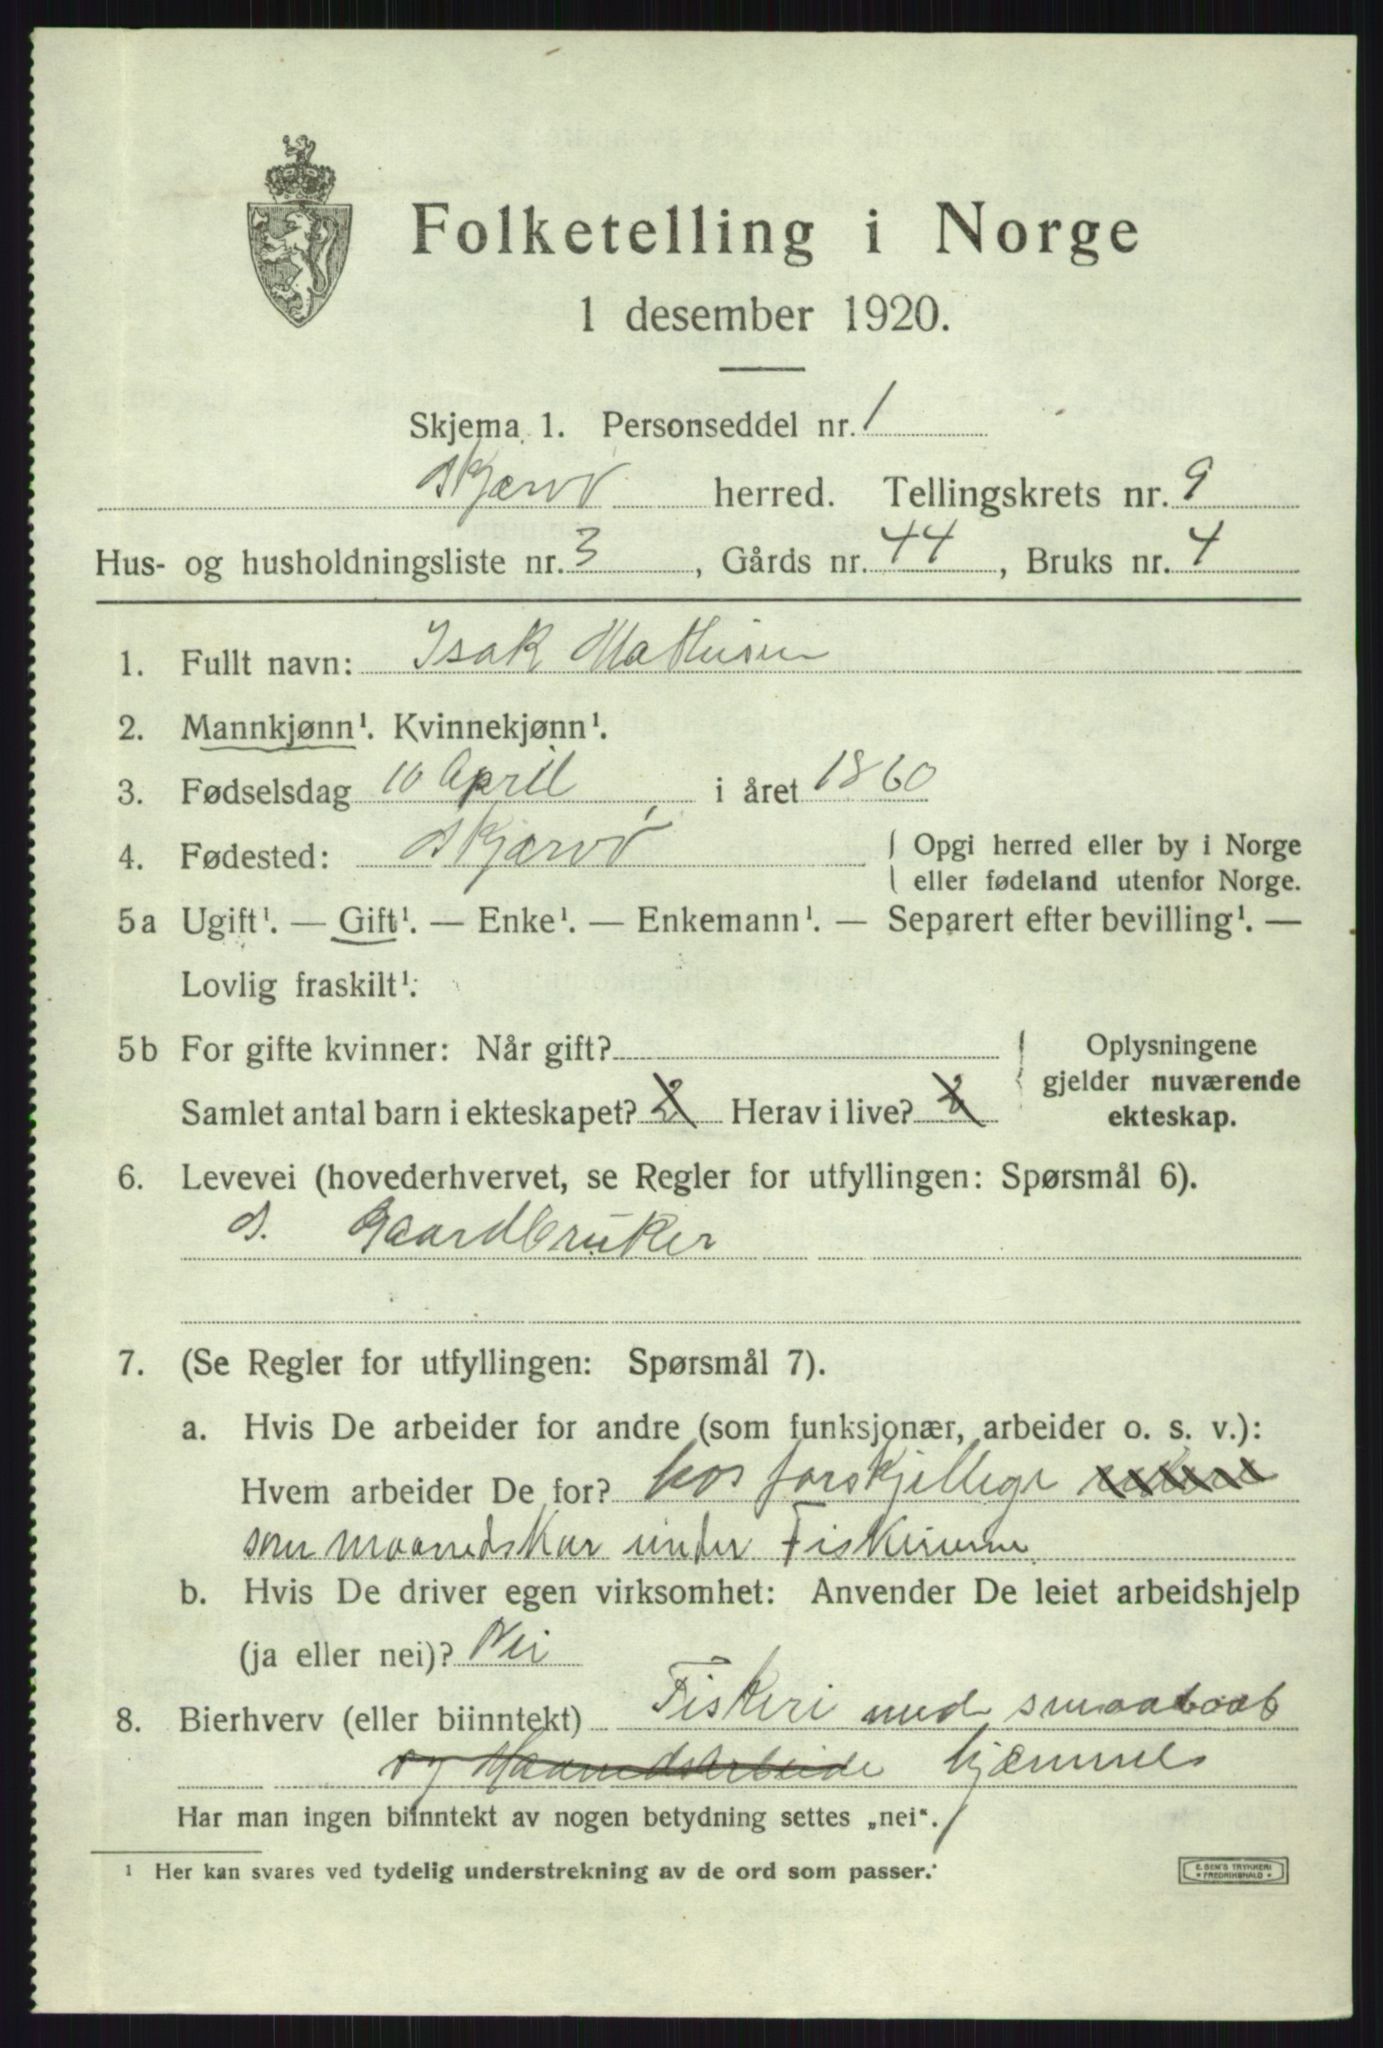 Folketelling i Norge
1 desember 1920.
Skjema 1. Personseddel nr. 1
Skjærvø herred. Tellingskrets nr. 9
Hus- og husholdningsliste nr. 3, Gårds nr. 44, Bruks nr. 4
1. Fullt navn: Isak Mathisen
2. Mannkjønn¹. Kvinnekjønn¹.
3. Fødselsdag 10 April i året 1860
4. Fødested: Skjærvø { Opgi herred eller by i Norge
eller fødeland utenfor Norge.
5a Ugift¹. — Gift¹. — Enke¹. — Enkemann¹. — Separert efter bevilling¹. —
Lovlig fraskilt¹.
5b For gifte kvinner: Når gift? { Oplysningene
gjelder nuværende
Samlet antal barn i ekteskapet? 2 Herav i live? 2 ekteskap.
6. Levevei (hovederhvervet, se Regler for utfyllingen: Spørsmål 6).
S. Gaardbruker
7. (Se Regler for utfyllingen: Spørsmål 7).
a. Hvis De arbeider for andre (som funksjonær, arbeider o. s. v.):
Hvem arbeider De for? hos forskjellige
som maanedskar under Fiskerierne
b. Hvis De driver egen virksomhet: Anvender De leiet arbeidshjelp
(ja eller nei)? Nei
8. Bierhverv (eller biinntekt) Fiskeri med smaabaat
og Maanedsarbeide hjemmels
Har man ingen biinntekt av nogen betydning settes „nei“.
¹ Her kan svares ved tydelig understrekning av de ord som passer.
E. SEM'S TRYKKERI
* FREDRIKSHALD *